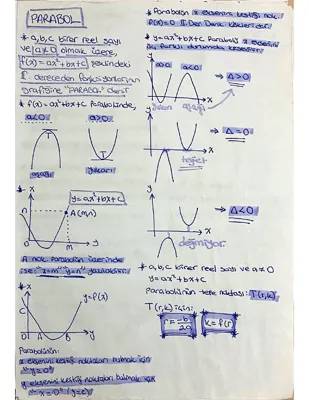 PARABOL
* a,b,c birer reel sayı
ve a≠0 olmak üzere,
f(x)=ax²+bx+c şeklindeki
II. dereceden fonksiyonların
grafiğine "PARABOL" denir
* f(x)=ax²+bx+c parabolünde,
a<0
a>0
aşağı
yukarı
x
y=ax²+bx+c
n
A(m,n)
0
m
y
A nok. parabolün üzerinde
ise; "x=m" "y=n" yazılabilir.
*
x
y=f(x)
C
0
A
B
y
Parabolünün:
x eksenini kestiği noktaları bulmak için
"y=0"
y eksenini kestiği noktaları bulmak için
"x=0" (y=c)
* Parabolün x eksenini kestiği nok.
f(x)=0 II. Der. Denk. kökleridir.
* y=ax²+bx+c Parabolü x eksenini
üç farklı durumda kesebilir.
y
a>0
a<0
x
→ Δ>0
yukarı
aşağı
y
x
→ Δ=0
teğet
y
x
→ Δ<0
değmiyor
* a,b,c birer reel sayı ve a≠0
y=ax²+bx+c
Parabolünün tepe noktası: T(r,k)
T(r,k) için;
r=-b/2a
k=f(r)